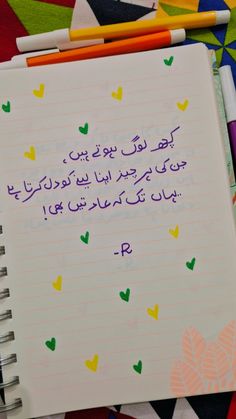 کچھ لوگ ہوتے ہیں،
جن کی ہر چیز اپنا لینے کو دل کرتا ہے
یہاں تک کہ عادتیں بھی!
-R